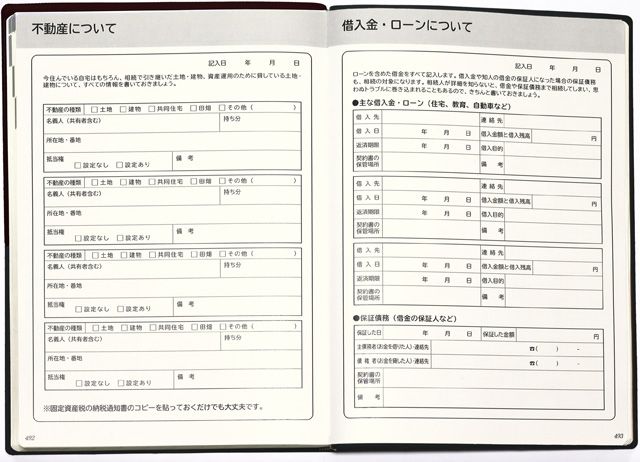 不動産について
記入日　　年　　月　　日
今住んでいる自宅はもちろん、相続で引き継いだ土地・建物、資産運用のために貸している土地・
建物について、すべての情報を書いておきましょう。
不動産の種類 □土地 □建物 □共同住宅 □田畑 □その他（　　　）
名義人（共有者含む） 持ち分
所在地・番地
抵当権 □設定なし □設定あり 備　考
不動産の種類 □土地 □建物 □共同住宅 □田畑 □その他（　　　）
名義人（共有者含む） 持ち分
所在地・番地
抵当権 □設定なし □設定あり 備　考
不動産の種類 □土地 □建物 □共同住宅 □田畑 □その他（　　　）
名義人（共有者含む） 持ち分
所在地・番地
抵当権 □設定なし □設定あり 備　考
不動産の種類 □土地 □建物 □共同住宅 □田畑 □その他（　　　）
名義人（共有者含む） 持ち分
所在地・番地
抵当権 □設定なし □設定あり 備　考
※固定資産税の納税通知書のコピーを貼っておくだけでも大丈夫です。
492
借入金・ローンについて
記入日　　年　　月　　日
ローンを含めた借金をすべて記入します。借入金や知人の借金の保証人になった場合の保証債務
も、相続の対象になります。相続人が詳細を知らないと、借金や保証債務まで相続してしまい、思
わぬトラブルに巻き込まれることもあるので、きちんと書いておきましょう。
●主な借入金・ローン（住宅、教育、自動車など）
借入先 連絡先
借入日　　年　　月　　日 借入金額と借入残高　　円
返済期限　　年　　月　　日 借入目的
契約書の
保管場所 備　考
借入先 連絡先
借入日　　年　　月　　日 借入金額と借入残高　　円
返済期限　　年　　月　　日 借入目的
契約書の
保管場所 備　考
借入先 連絡先
借入日　　年　　月　　日 借入金額と借入残高　　円
返済期限　　年　　月　　日 借入目的
契約書の
保管場所 備　考
●保証債務（借金の保証人など）
保証した日　　年　　月　　日 保証した金額　　円
主債務者（お金を借りた人）・連絡先 ☎（　　）　-
債権者（お金を貸した人）・連絡先 ☎（　　）　-
契約書の
保管場所
備　考
493